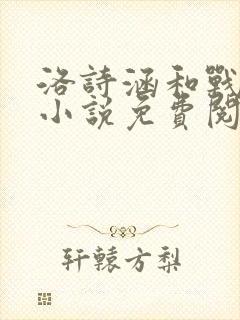 洛詩涵和戰
小說免費閱
轩辕方梨